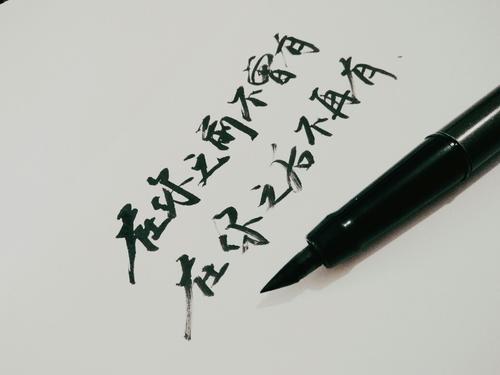 在你之前不曾有
在你之后不再有